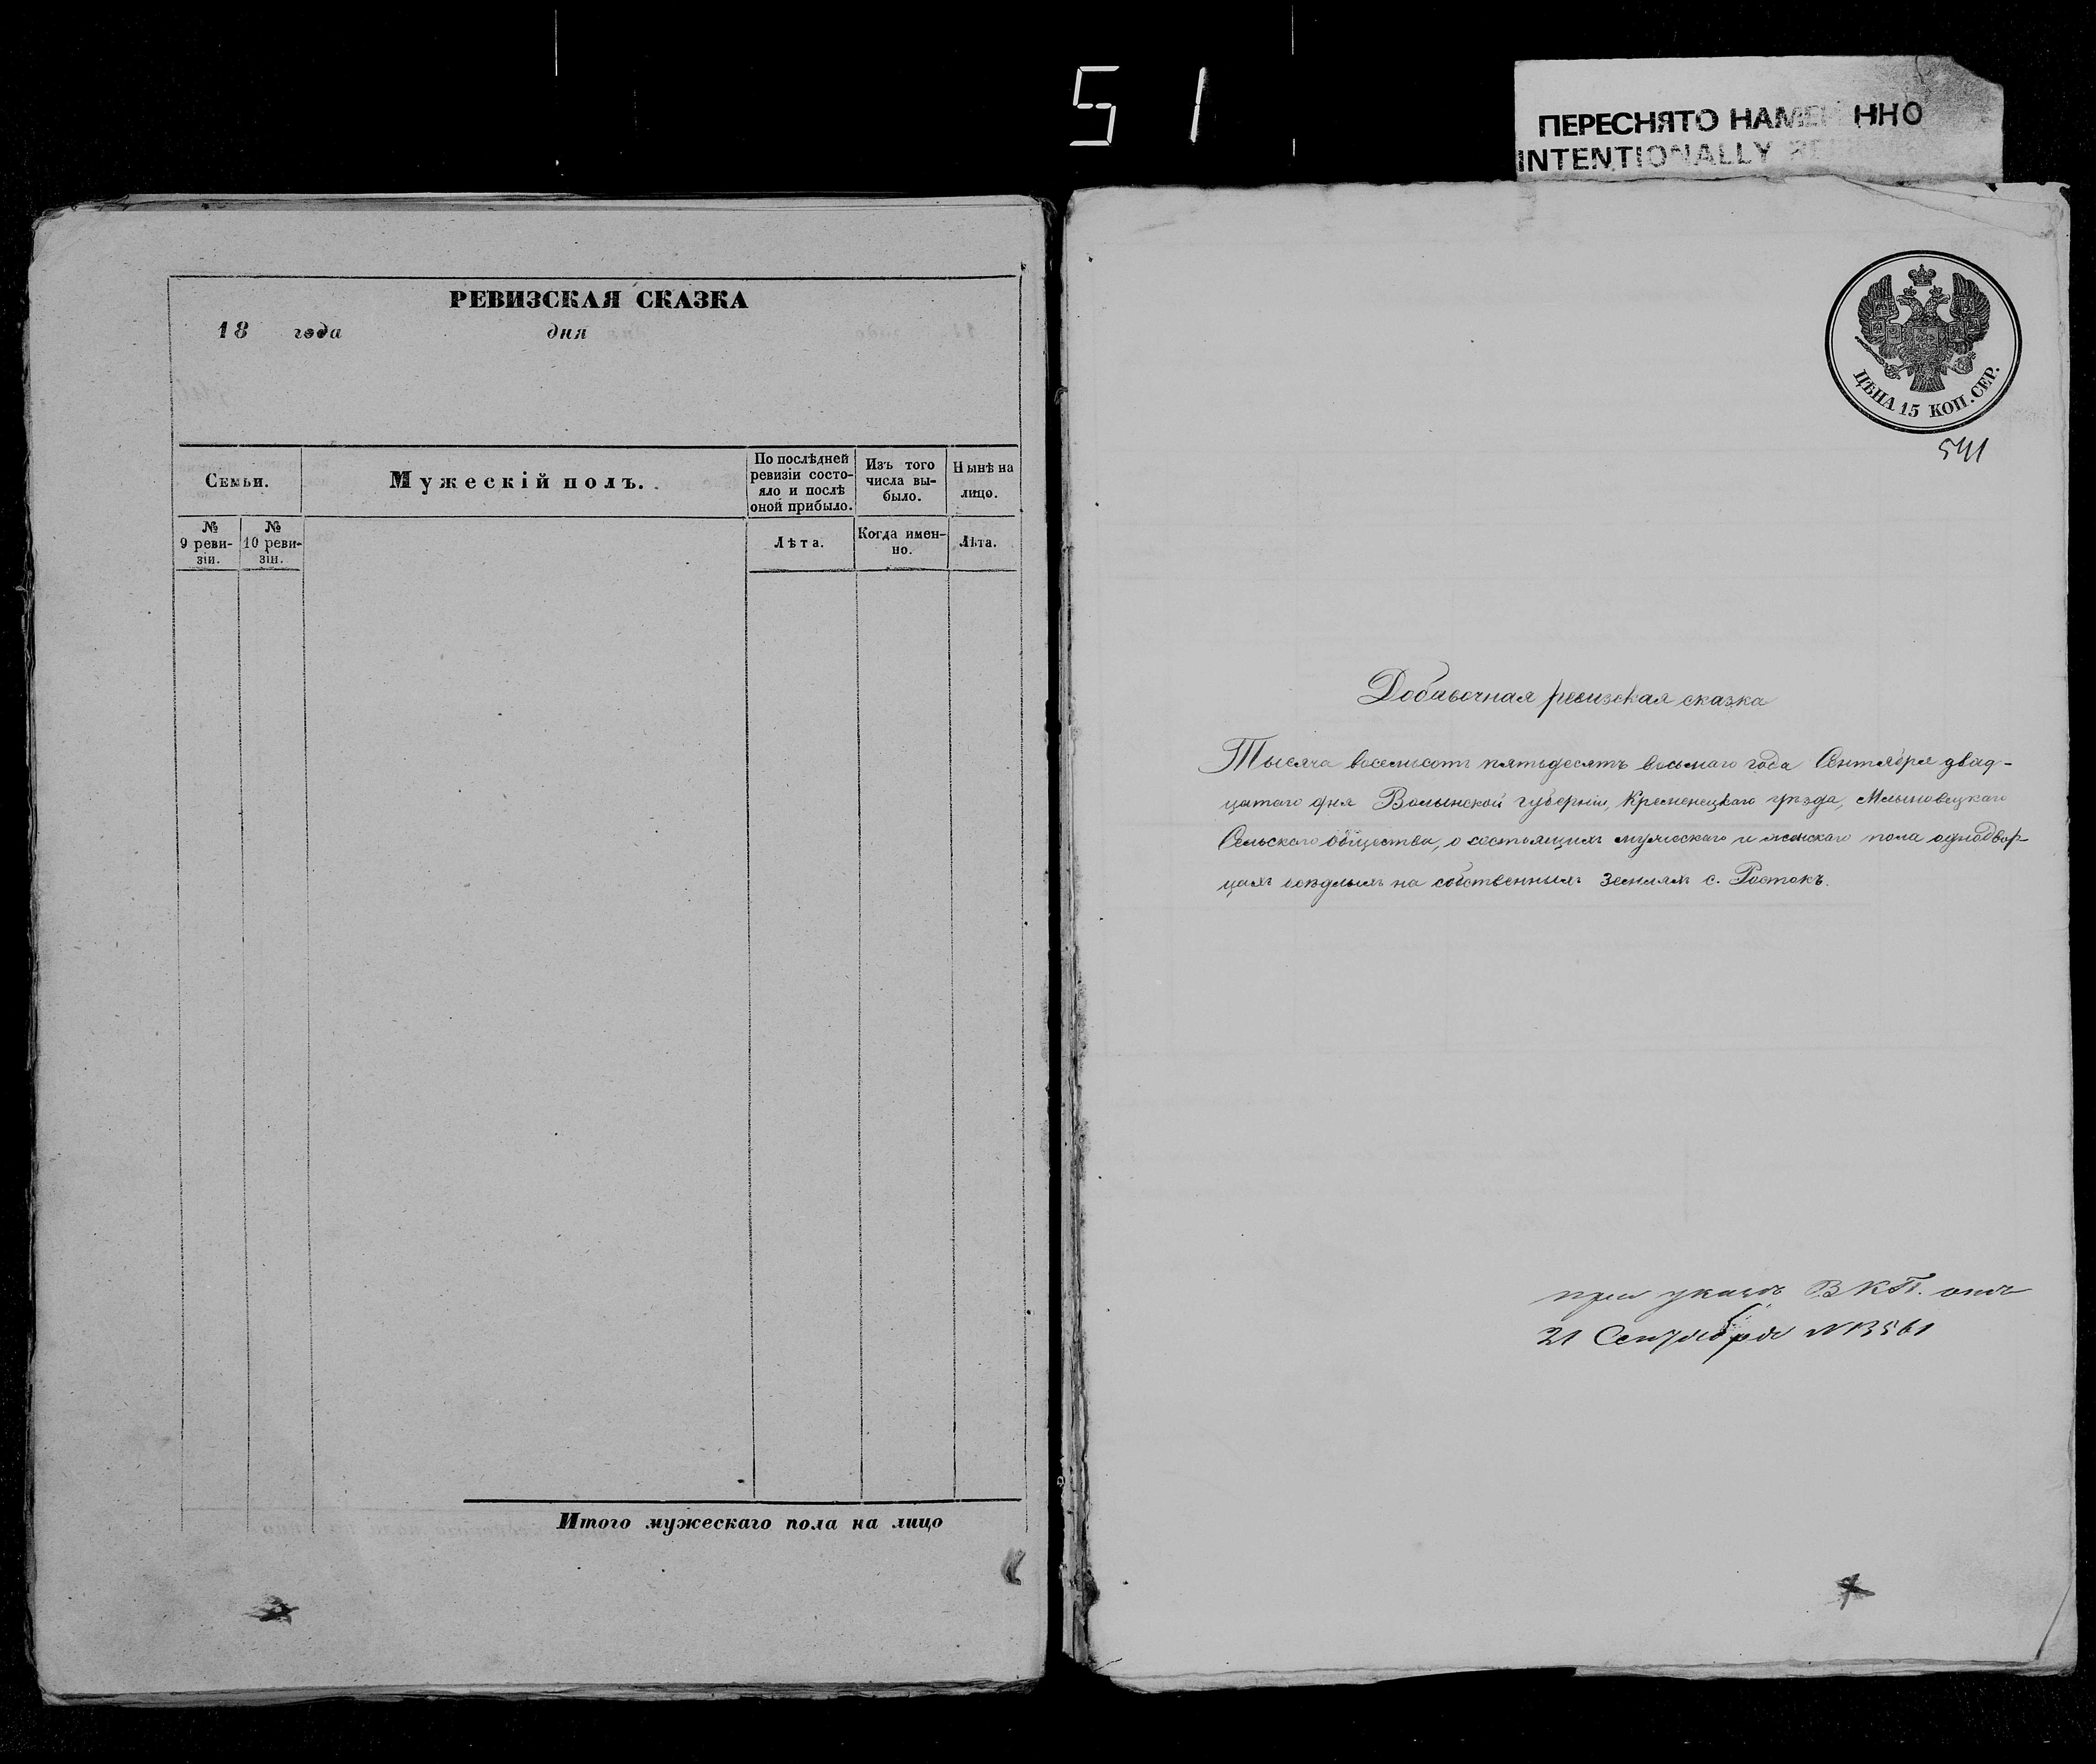 51
ПЕРЕСНЯТО НАМЕ ННО
INTENTIONALLY
РЕВИЗСКАЯ СКАЗКА
18 года дня
Семьи.
Мужескій полъ.
По послѣдней ревизіи состо-
яло и послѣ оной прибыло.
Изъ того числа вы-
было.
Нынѣ на лицо.
№ 9 реви-
зіи.
№ 10 реви-
зіи.
Лѣта.
Когда имен-
но.
Лѣта.
Итого мужескаго пола на лицо
ЦѢНА 15 КОП. СЕР.
541
Добавочная ревизская сказка
Тысяча восемьсотъ пятьдесятъ восьмаго года Сентября двад-
цатаго дня Волынской губерніи, Кременецкаго уѣзда, Млыновецкаго
Сельскаго общества, о состоящихъ мужескаго и женскаго пола однодвор-
цахъ осѣдлыхъ на собственныхъ земляхъ с. Ростокъ.
при указѣ В К П. отъ
21 Сентября № 13561